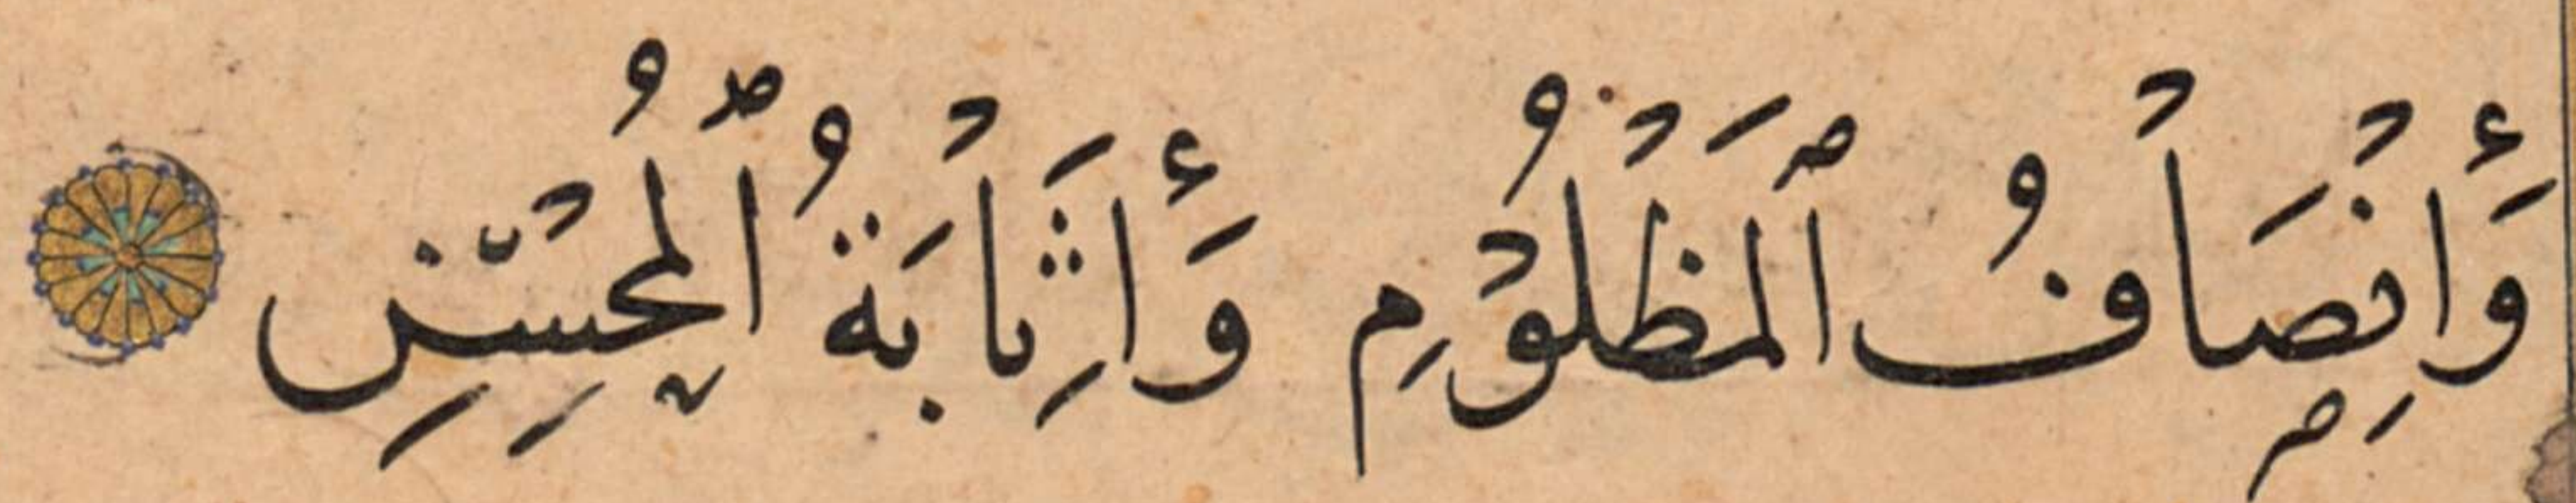 وَإِنْصَافُ ٱلْمَظْلُوْمِ وَإِثَابَةُ ٱلْمُحْسِنِ